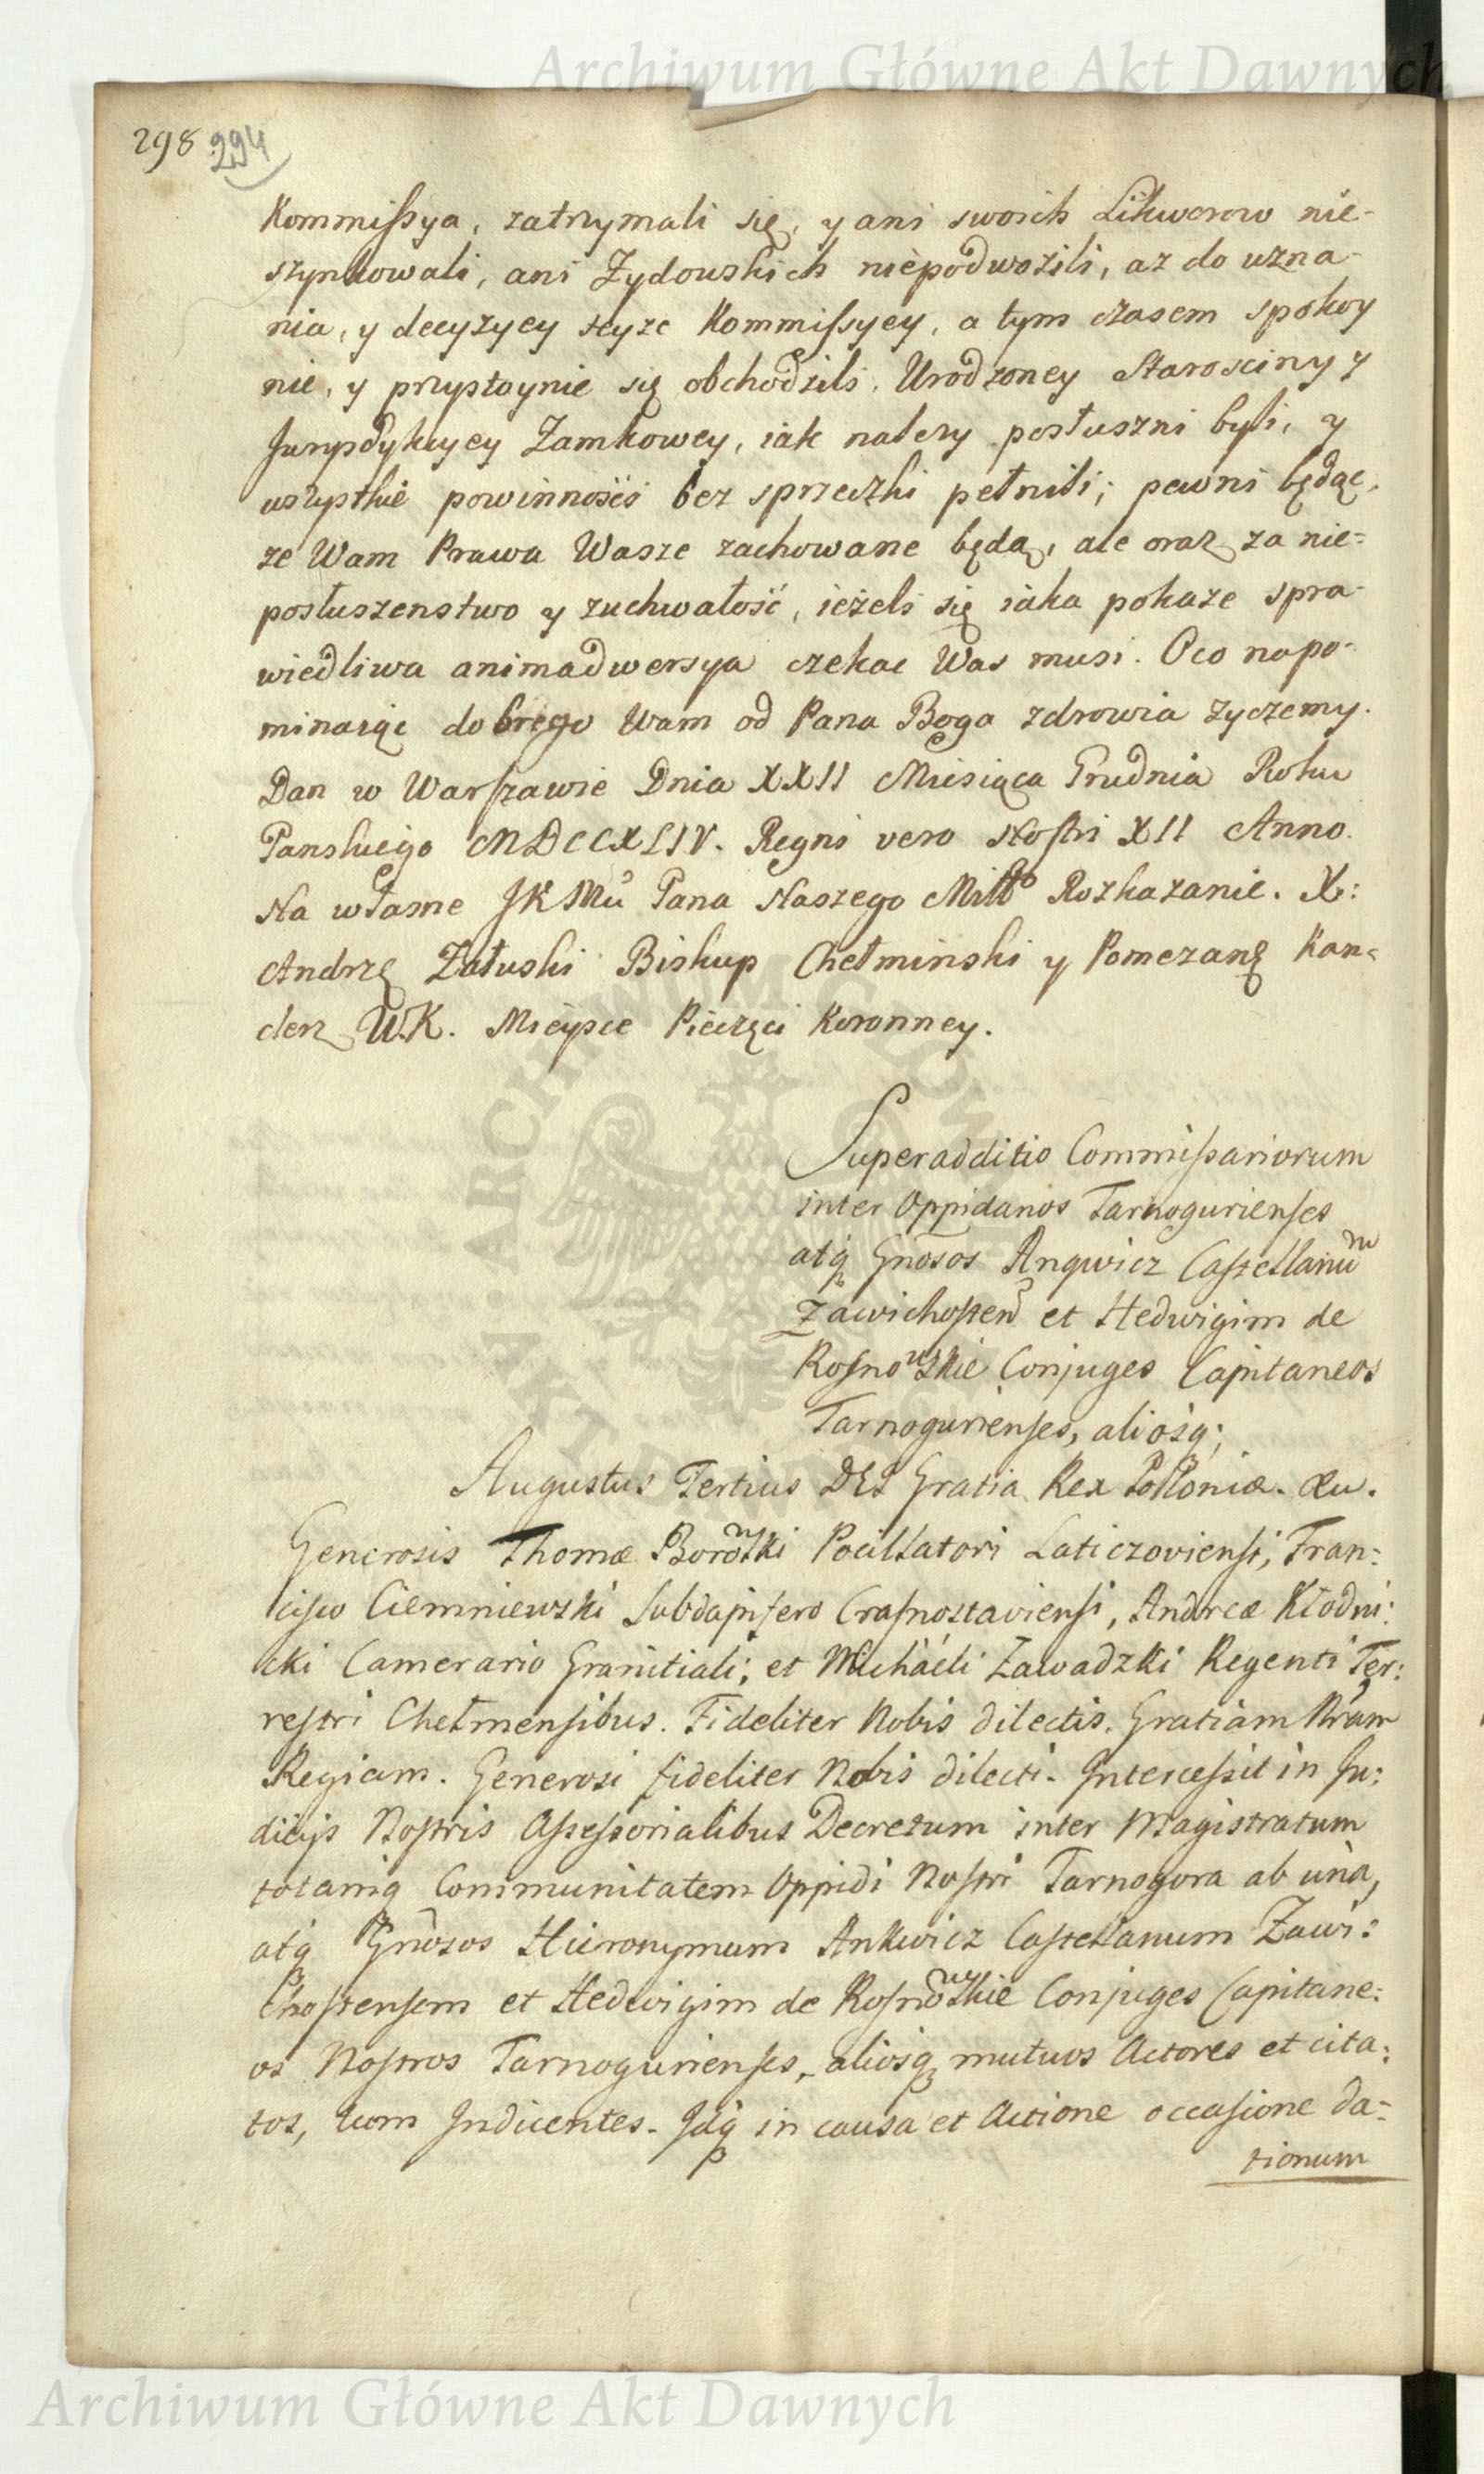 Archiwum Główne Akt Dawnych
298 294
Kommißya, zatrzymali się, y ani swoich Likworow nie-
szynkowali, ani Zydowskich niepodwozili, az do uzna-
nia, y decyzyey teyze Kommiſsyey, a tym czasem spokoy
nie, y przystoynie się obchodzili. Urodzoney Starosciny y
Jurysdykcyey Zamkowey, iak nalezy posłuszni byli, y
wszystkie powinnośći bez sprzeczki pełnili; pewni będąc,
ze Wam Prawa Wasze zachowane będą, ale oraz za nie=
posłuszenstwo y zuchwałość, ieżeli się iaka pokaze spra-
wiedliwa animadwersya czekac Was musi. Oco napo-
minaiąc dobrego Wam od Pana Boga zdrowia zyczemy.
Dan w Warſzawie Dnia XXII Miesiąca Grudnia Roku
Panskiego MDCCXLIV. Regni vero Noſtri XII Anno.
Na własne JKMći Pana Naszego Miłłо Rozkazanie. X:
Andrzę Załuski Biskup Chełminski y Pomezanę Kan=
clerz W.K. Mieysce Pieczęci Koronney.
Superadditio Commiſsariorum
inter Oppidanos Tarnogurienſes
atq Gnosos Anqwicz Caſtellanum
Zawichoſten et Hedwigim de
Roſnowskie Conjuges Capitaneos
Tarnogurienſes, aliosq;
Augustus Tertius DEI Gratia Rex Poloniæ. &c.
Generosis Thomæ Borowski Pocillatori Laticzovienſi, Fran:
ciſco Ciemniewski Subdapifero Craſnostavienſi, Andreæ Kłodni:
cki Camerario Granitiali; et Michaeli Zawadzki Regenti Ter:
reſtri Chełmenſibus. Fideliter Nobis dilectis. Gratiam Nram
Regiam. Generosi fideliter Nobis dilecti. Interceſsit in Ju:
dicijs Noſtris Aſseſsorialibus Decretum inter Magistratum
totamq Communitatem Oppidi Noſtri Tarnogora ab una,
atq Gnosos Hieronymum Ankwicz Caſtellanum Zawi:
choſtensem et Hedwigim de Roſnowskie Conjuges Capitane:
os Noſtros Tarnogurienſes, aliosq mutuos Actores et cita:
tos, tum Inducentes. Idq in causa et Actione occaſione da-
tionum
Archiwum Główne Akt Dawnych